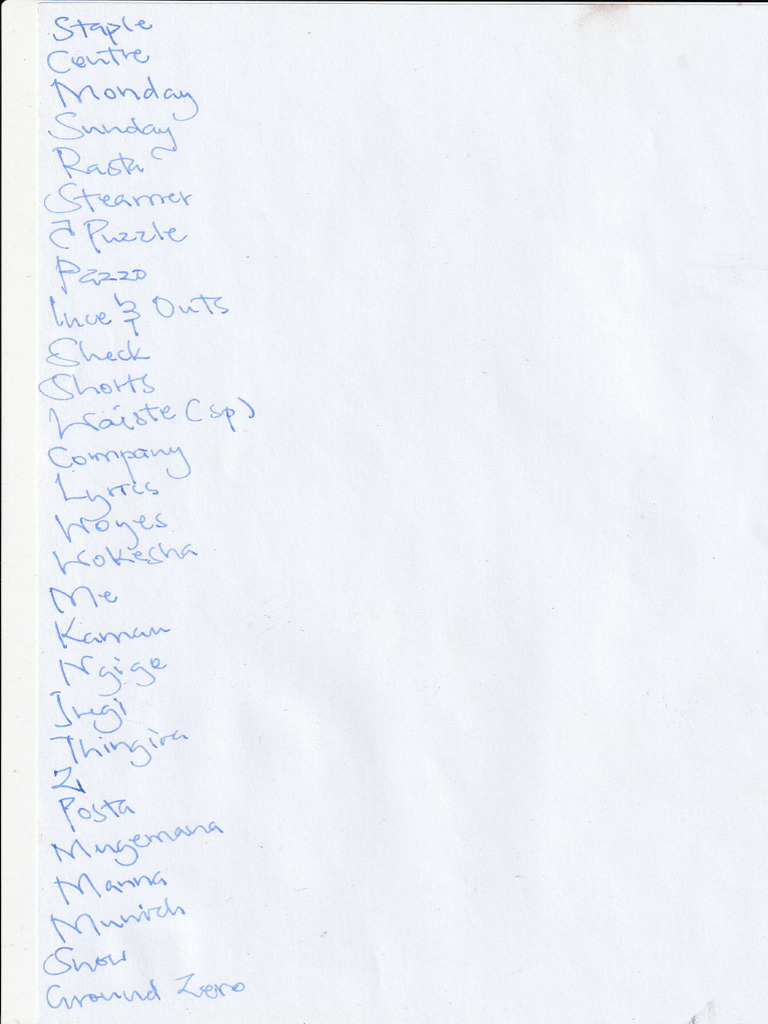 Staple
Centre
Monday
Sunday
Rasta
Steamer
Puzzle
Pazzo
Ince & Outs
Sheck
Shorts
Waiste (sp)
Company
Lyrics
Woyes
Wokesha
Me
Kamau
Ngige
Iregi
Thingira
Z
Posta
Mugemana
Manna
Munich
Snow
Ground Zero